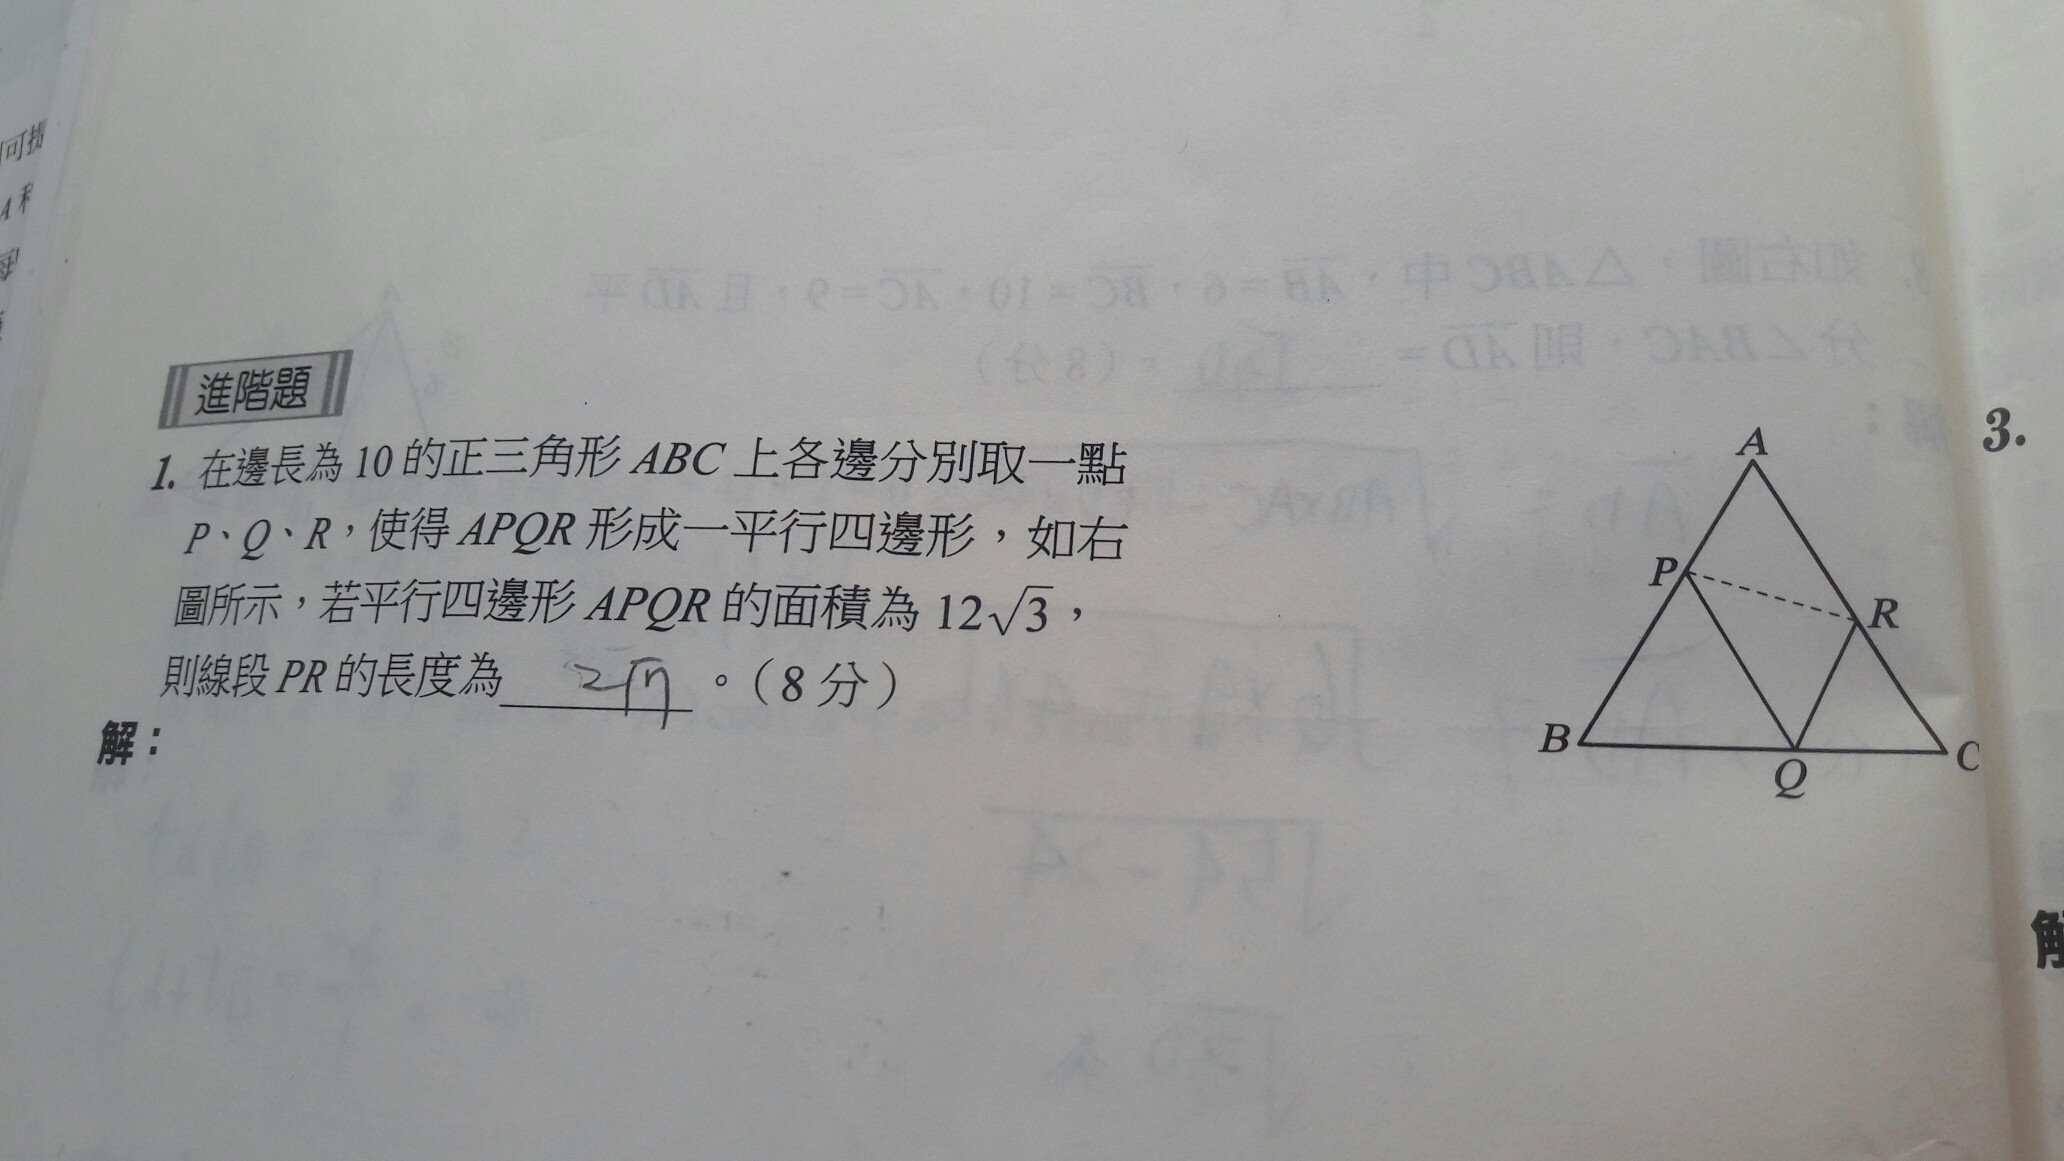 進階題
1. 在邊長為 10 的正三角形 ABC 上各邊分別取一點
P、Q、R，使得 APQR 形成一平行四邊形，如右
圖所示，若平行四邊形 APQR 的面積為 12√3，
則線段 PR 的長度為 2√7 。（8 分）
解：
A
P
R
B
Q
C
3.
可
A 和